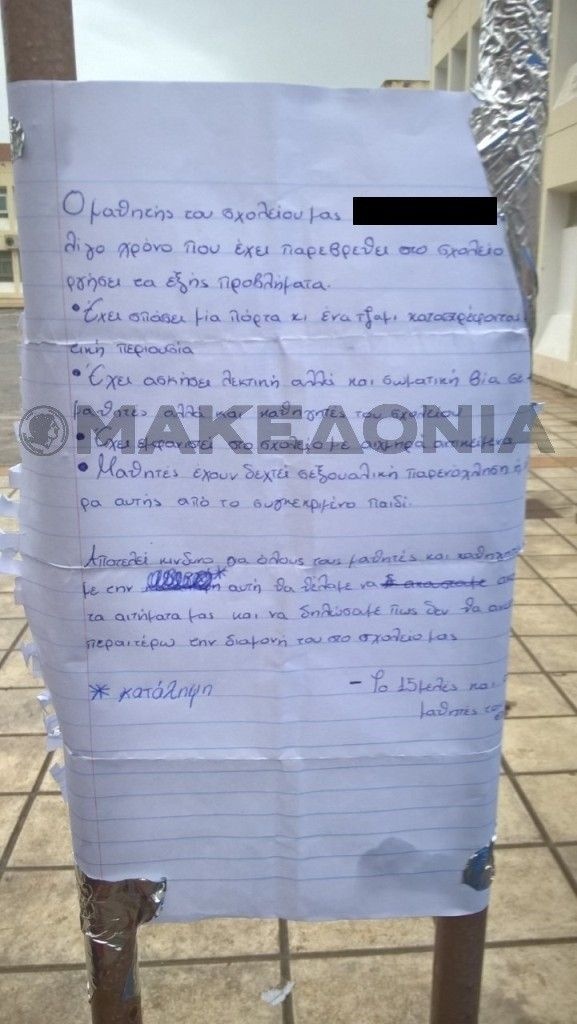 Ο μαθητής του σχολείου μας
λίγο χρόνο που έχει παρεβρεθεί στο σχολείο
ργήσει τα εξής προβλήματα.
• Έχει σπάσει μία πόρτα κι ένα τζάμι καταστρέφοντα
τική περιουσία
• Έχει ασκήσει λεκτική αλλά και σωματική βία σε
μαθητές αλλά και καθηγητές του σχολείου
• Έχει εμφανιστεί στο σχολείο με αιχμηρά αντικείμενα
• Μαθητές έχουν δεχτεί σεξουαλική παρενόχληση ή
ρα αυτής από το συγκεκριμένο παιδί.
Αποτελεί κίνδυνο για όλους τους μαθητές και καθηγητ
με την * αυτή θα θέλαμε να
τα αιτήματα μας και να δηλώσαμε πως δεν θα
περαιτέρω την διαμονή του στο σχολείο μας
* κατάληψη
- Το 15μελές και
μαθητές το
ΜΑΚΕΔΟΝΙΑ